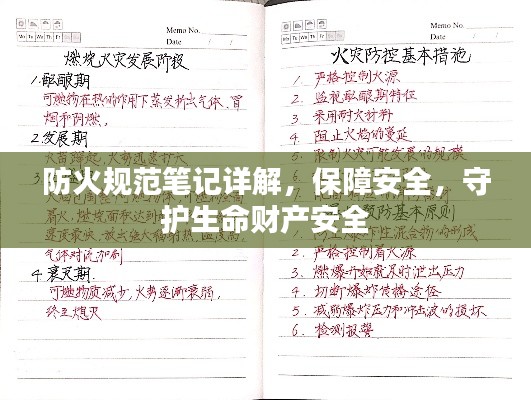 Memo No.
Mo Tu We Th Fr Sa Su
Date
燃烧火灾发展阶段
1.酝酿期
可燃物在热的作用下蒸发析出气体、冒
烟和阴燃。
2.发展期
火苗蹿起,火势迅速扩大
4.衰灭期
可燃物质减少,火势逐渐衰弱,
终至熄灭
气体对流加剧
Memo No.
Mo Tu We Th Fr Sa Su
Date
火灾防控基本措施
1. 严格控制火源
2. 监视酝酿期特征
3. 采用耐火材料
4. 阻止火焰的蔓延
5. 限制火灾可能发展的规模
防爆基本原则
2. 严格控制着火源
3. 燃爆开始就及时泄出压力
4. 切断爆炸传播途径
5. 减弱爆炸压力和冲击波的损坏
6. 检测报警
防火规范笔记详解,保障安全,守
护生命财产安全